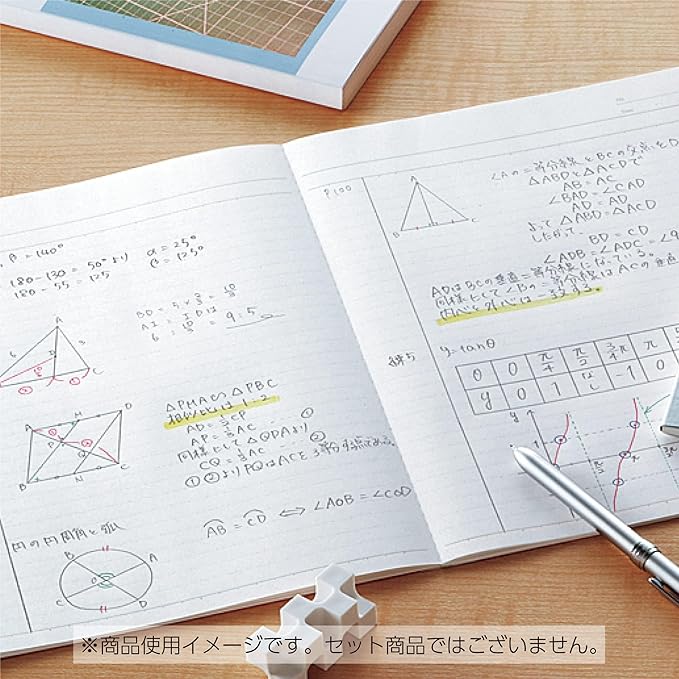 β = 140°
180 - 130 = 50° より
180 - 55 = 125
α = 25°
β = 125°
BD = 5 ×
AI : ID は
6 : 10/3 = 9 : 5
△PMA ∽ △PBC
相似比は 1 : 2
AD = 1/3 CP
AP = 1/3 AC ... ①
同様にして △QDA より
CQ = 1/3 AC ... ②
①②より PQはACを3等分する点である。
円の円周角と弧
AB = CD ⇔ ∠AOB = ∠COD
A
B
C
D
O
P100
∠Aの二等分線とBCの交点をD
△ABDと△ACDで
AB = AC
∠BAD = ∠CAD
AD = AD
よって △ABD = △ACD
したがって、
BD = CD
∠ADB = ∠ADC = ∠9
ADはBCの垂直二等分線になっている。
同様にして∠Bの二等分線はACの垂直
内心と外心は一致する。
5
y = tanθ
θ 0 π/4 π/2 3/4π π 5
y 0 1 なし -1 0
y
1
※商品使用イメージです。セット商品ではございません。